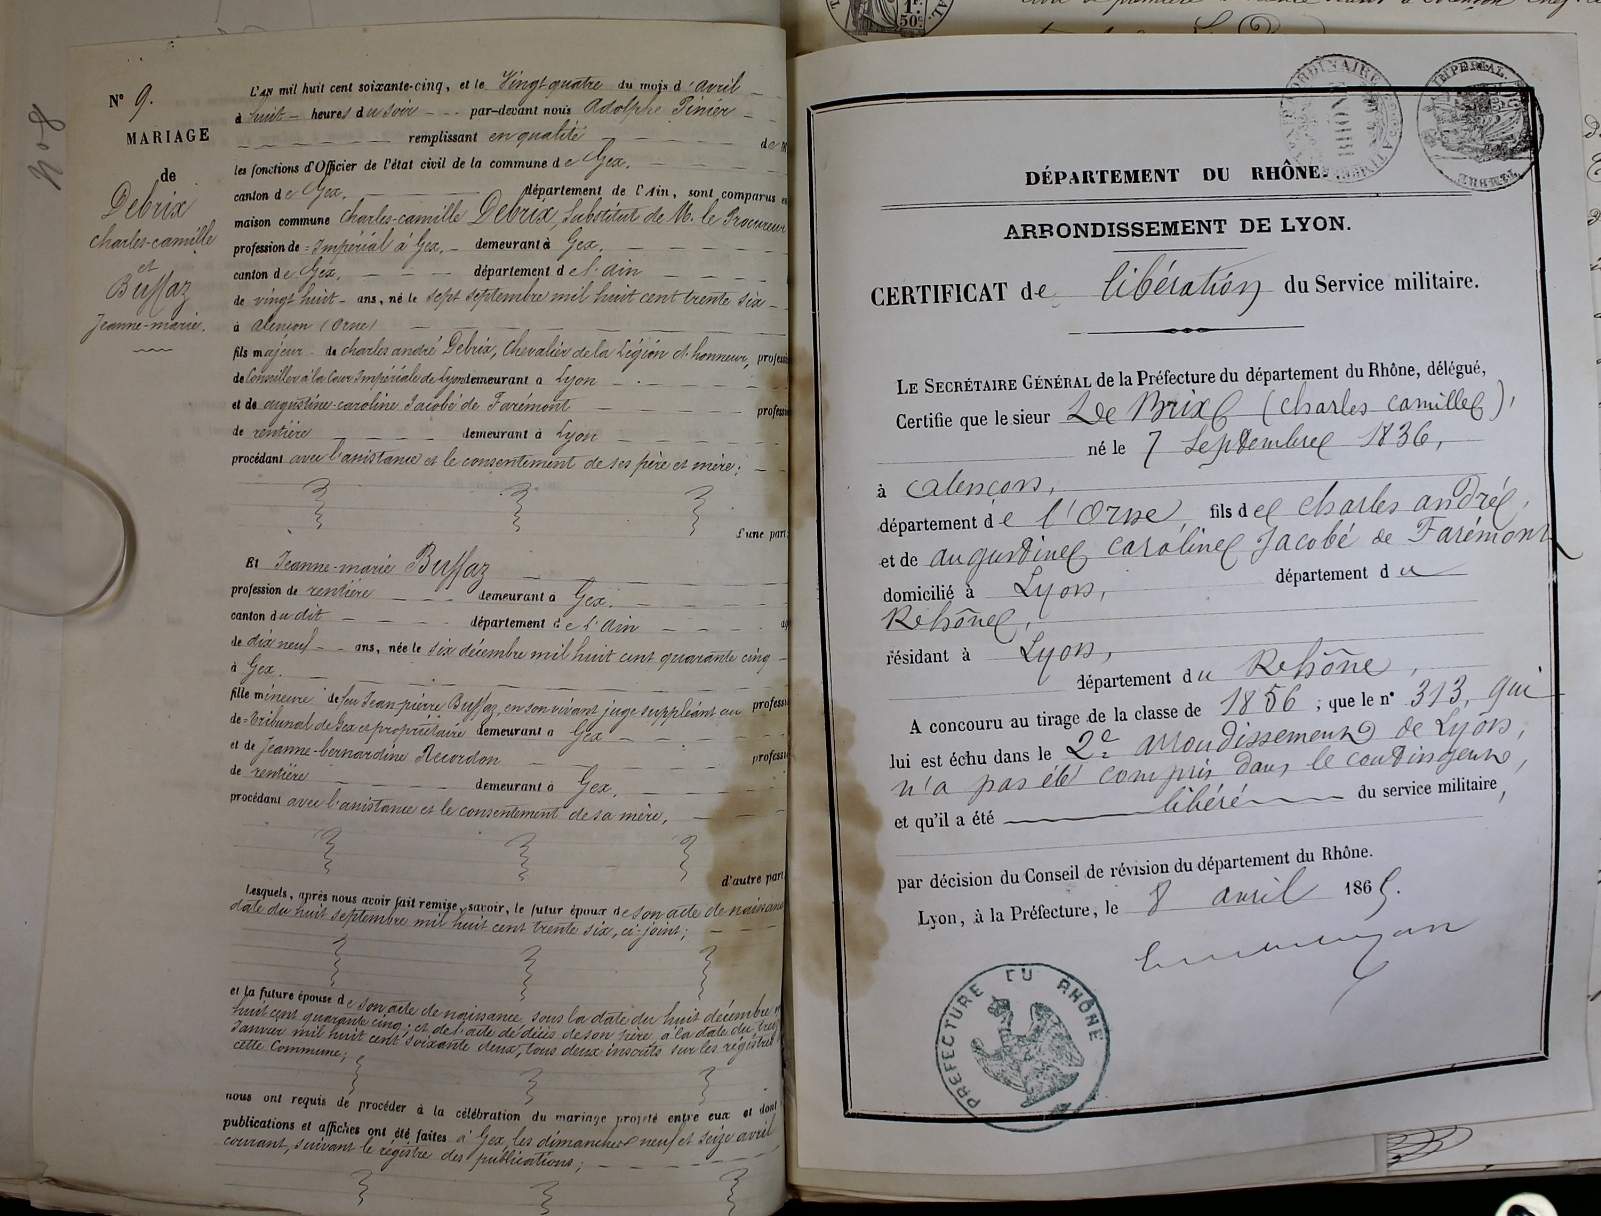 N° 8
N° 9.
MARIAGE
de
Debrix
charles-camille
et
Buffaz
Jeanne-marie.
L'AN mil huit cent soixante-cinq, et le Vingt quatre du mois d'avril
à huit heures du soir par-devant nous Adolphe Pinier
remplissant en qualité de
les fonctions d'Officier de l'état civil de la commune de Gex.
canton de Gex, département de l'Ain, sont comparus en
maison commune charles-camille Debrix, Substitut de M. le Procureur
profession de = Impérial à Gex. demeurant à Gex.
canton de Gex, département de l'ain
de vingt huit ans, né le sept septembre mil huit cent trente six
à alençon (Orne)
fils majeur de charles andré Debrix, Chevalier de la Légion d'honneur, profession
de Conseiller à la Cour Impériale de Lyon demeurant à Lyon
et de augustine-caroline Jacobé de Farémont profession
de rentière demeurant à Lyon
procédant avec l'assistance et le consentement de ses père et mère;
d'une part;
Et Jeanne-marie Buffaz
profession de rentière demeurant à Gex.
canton du dit département de l'Ain
de dix neuf ans, née le six décembre mil huit cent quarante cinq
à Gex.
fille mineure de feu Jean-pierre Buffaz, en son vivant juge suppléant au profession
de = Tribunal de Gex et propriétaire demeurant à Gex
et de Jeanne-bernardine Recordon profession
de rentière demeurant à Gex.
procédant avec l'assistance et le consentement de sa mère,
d'autre part
Lesquels, après nous avoir fait remise, savoir, le futur époux de son acte de naissance
date du huit septembre mil huit cent trente six, ci-joint;
et la future épouse de son acte de naissance, sous la date du huit décembre
huit cent quarante cinq; et de l'acte de décès de son père, à la date du
Janvier mil huit cent soixante deux, tous deux inscrits sur les régistres
cette Commune;
nous ont requis de procéder à la célébration du mariage projeté entre eux et dont
publications et affiches ont été faites à Gex, les dimanches neuf et seize avril
courant, suivant le régistre des publications;
DÉPARTEMENT DU RHÔNE.
ARRONDISSEMENT DE LYON.
CERTIFICAT de libération du Service militaire.
LE SECRÉTAIRE GÉNÉRAL de la Préfecture du département du Rhône, délégué,
Certifie que le sieur De Brix (charles camille),
né le 7 Septembre 1836,
à alençon,
département de l'Orne, fils de charles andré,
et de augustine caroline Jacobé de Farémont
domicilié à Lyon, département du
Rhône,
résidant à Lyon,
département du Rhône,
A concouru au tirage de la classe de 1856; que le n° 313, qui
lui est échu dans le 2e arrondissement de Lyon,
n'a pas été compris dans le contingent,
et qu'il a été libéré du service militaire,
par décision du Conseil de révision du département du Rhône.
Lyon, à la Préfecture, le 8 avril 1865.
PREFECTURE DU RHÔNE